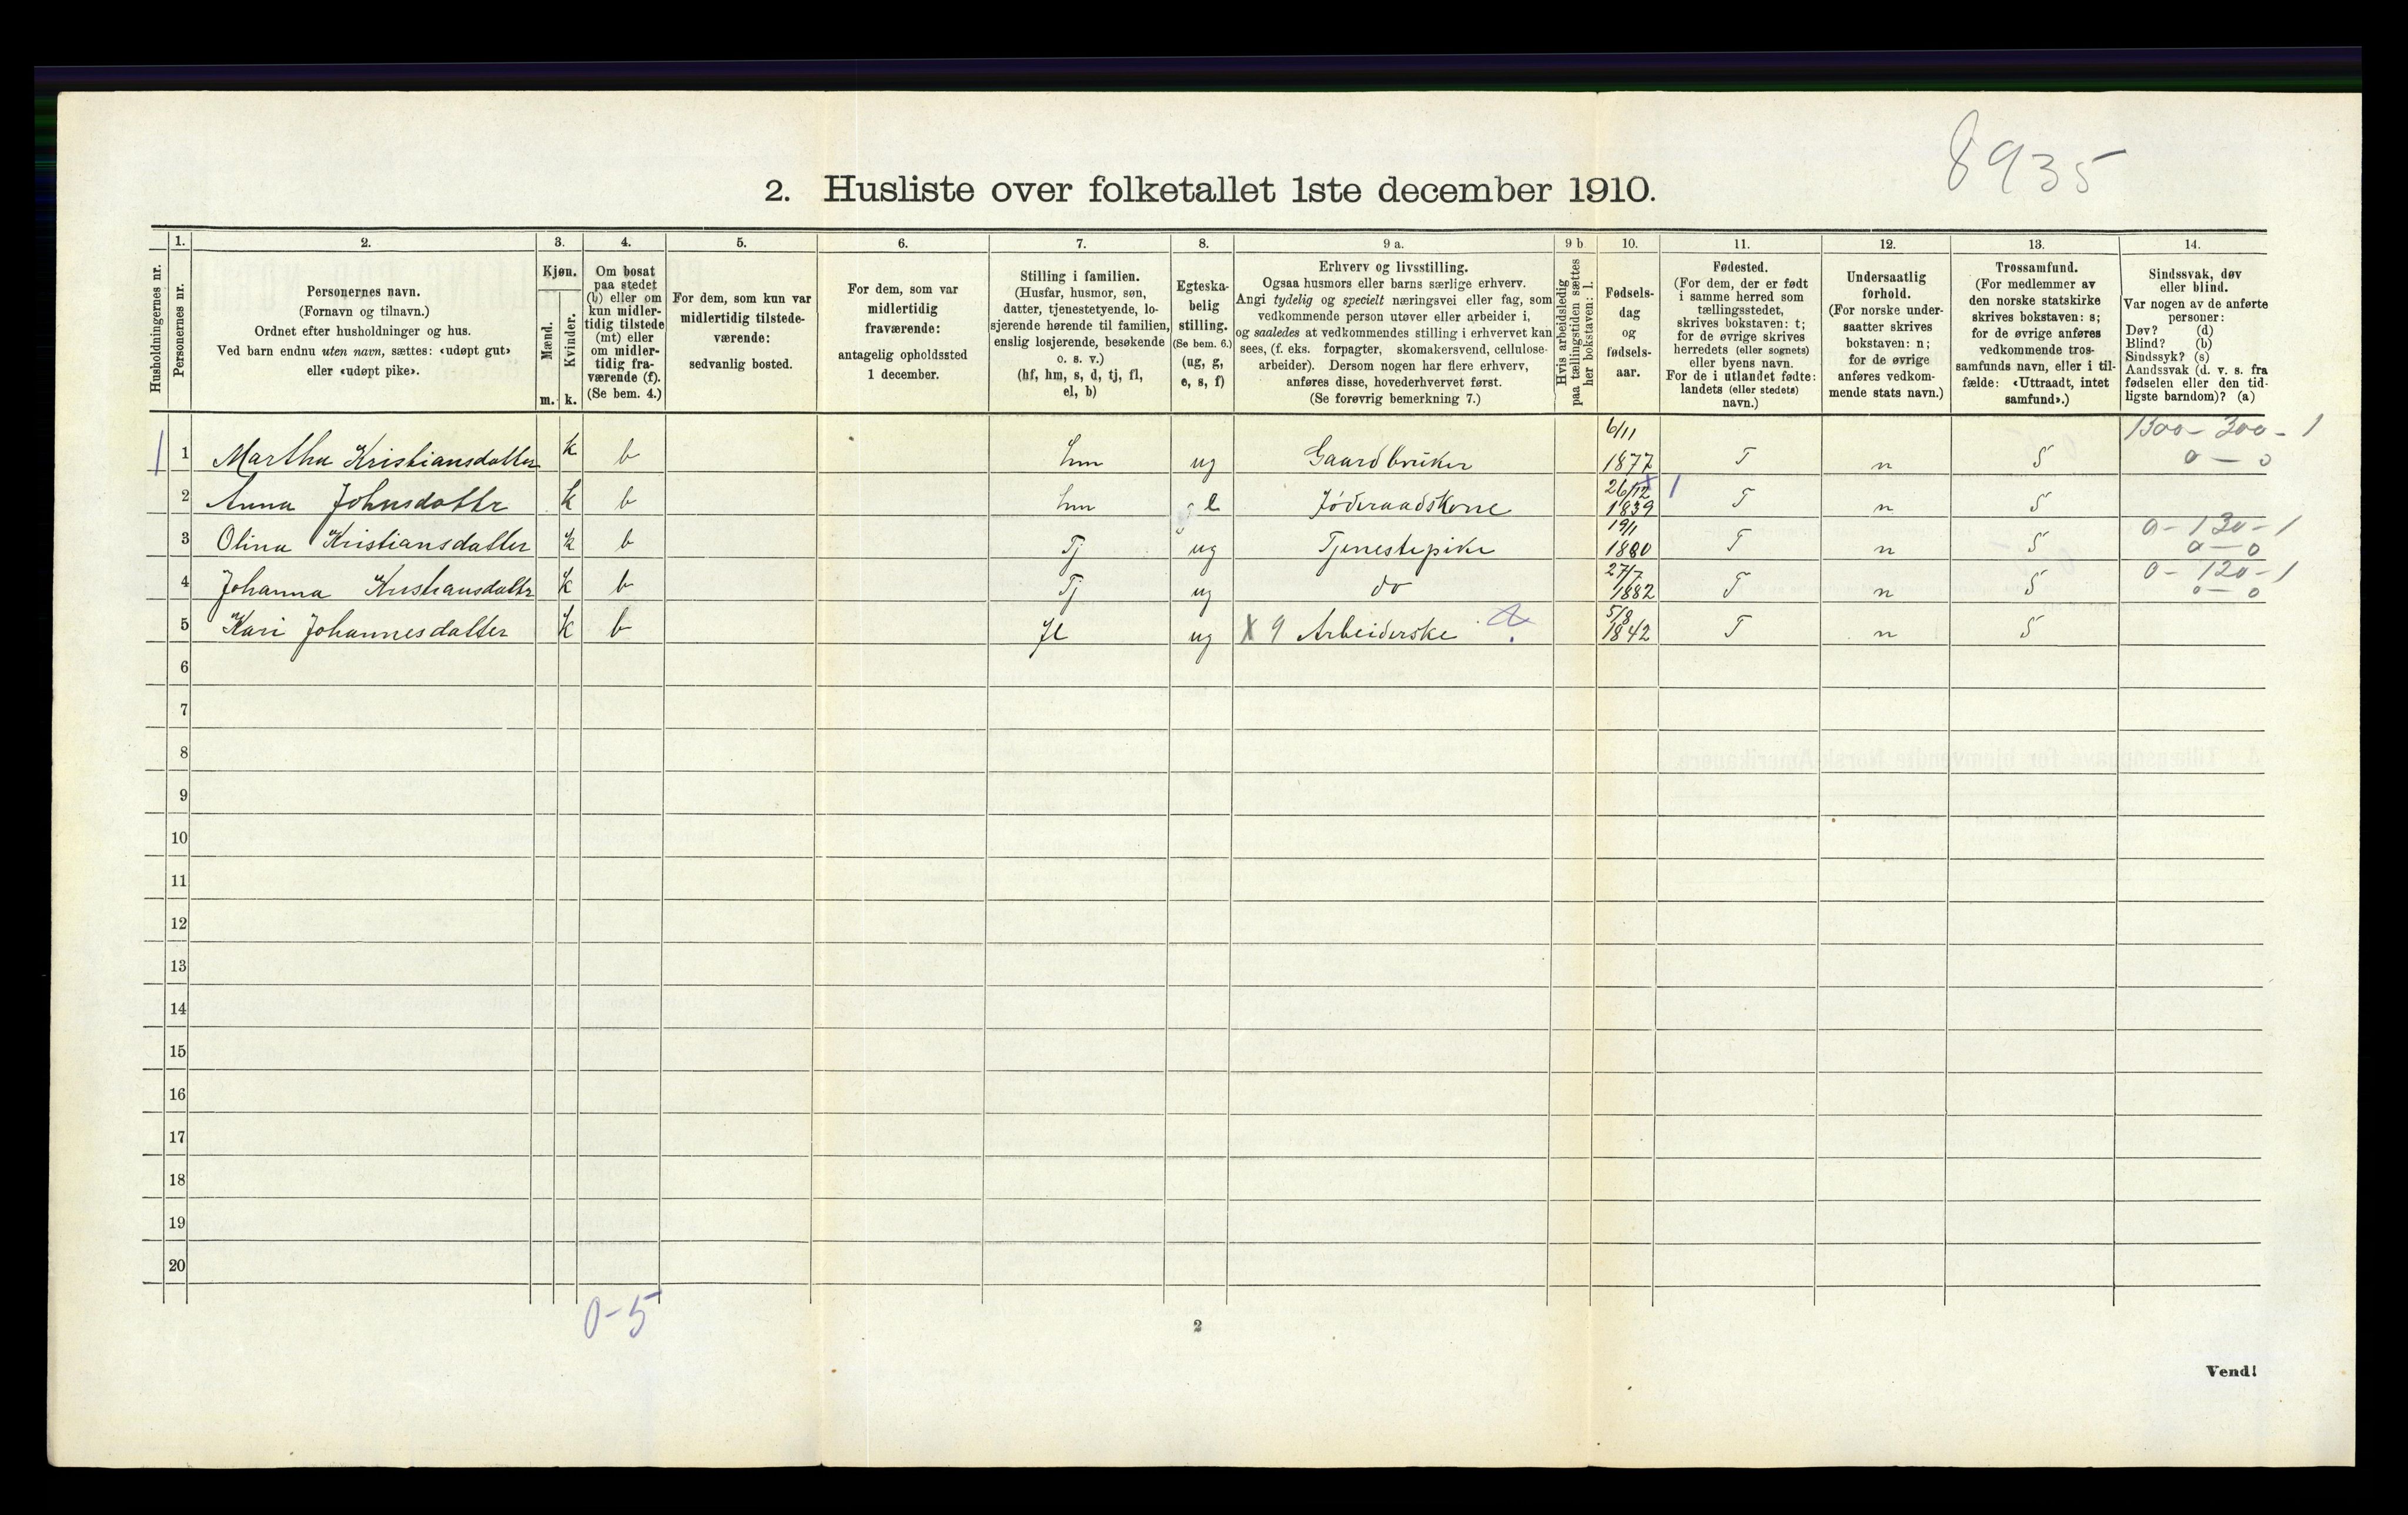 8935
2. Husliste over folketallet 1ste december 1910.
1. 2. 3. 4. 5. 6. 7. 8. 9 a. 9 b 10. 11. 12. 13. 14.
Husholdningernes nr.
Personernes nr.
Personernes navn.
(Fornavn og tilnavn.)
Ordnet efter husholdninger og hus.
Ved barn endnu uten navn, sættes: «udøpt gut»
eller «udøpt pike».
Kjøn.
Mænd.
Kvinder.
m. k.
Om bosat
paa stedet
(b) eller om
kun midler-
tidig tilstede
(mt) eller
om midler-
tidig fra-
værende (f).
(Se bem. 4.)
For dem, som kun var
midlertidig tilstede-
værende:
sedvanlig bosted.
For dem, som var
midlertidig
fraværende:
antagelig opholdssted
1 december.
Stilling i familien.
(Husfar, husmor, søn,
datter, tjenestetyende, lo-
sjerende hørende til familien,
enslig losjerende, besøkende
o. s. v.)
(hf, hm, s, d, tj, fl,
el, b)
Egteska-
belig
stilling.
(Se bem. 6.)
(ug, g,
e, s, f)
Erhverv og livsstilling.
Ogsaa husmors eller barns særlige erhverv.
Angi tydelig og specielt næringsvei eller fag, som
vedkommende person utøver eller arbeider i,
og saaledes at vedkommendes stilling i erhvervet kan
sees, (f. eks. forpagter, skomakersvend, cellulose-
arbeider). Dersom nogen har flere erhverv,
anføres disse, hovederhvervet først.
(Se forøvrig bemerkning 7.)
Hvis arbeidsledig
paa tællingstiden sættes
her bokstaven: l.
Fødsels-
dag
og
fødsels-
aar.
Fødested.
(For dem, der er født
i samme herred som
tællingsstedet,
skrives bokstaven: t;
for de øvrige skrives
herredets (eller sognets)
eller byens navn.
For de i utlandet fødte:
landets (eller stedets)
navn.)
Undersaatlig
forhold.
(For norske under-
saatter skrives
bokstaven: n;
for de øvrige
anføres vedkom-
mende stats navn.)
Trossamfund.
(For medlemmer av
den norske statskirke
skrives bokstaven: s;
for de øvrige anføres
vedkommende tros-
samfunds navn, eller i til-
fælde: «Uttraadt, intet
samfund».)
Sindssvak, døv
eller blind.
Var nogen av de anførte
personer:
Døv? (d)
Blind? (b)
Sindssyk? (s)
Aandssvak (d. v. s. fra
fødselen eller den tid-
ligste barndom)? (a)
1 1 Martha Kristiansdatter k b hm ug Gaardbruker 6/11 1877 T n S 1300 - 300 - 1 0 — 0
2 Anna Johnsdattr k b hm e Føderaadskone 26/12 1839 1 T n S
3 Olina Kristiansdatter k b Tj ug Tjenestepike 19/1 1880 T n S 0 - 130 - 1 0 — 0
4 Johanna Kristiansdattr k b Tj ug do 27/7 1882 T n S 0 - 120 - 1 0 — 0
5 Kari Johannesdatter k b fl ug X 9 Arbeiderske 5/8 1842 T n S
6
7
8
9
10
11
12
13
14
15
16
17
18
19
20
0-5
2
Vend!